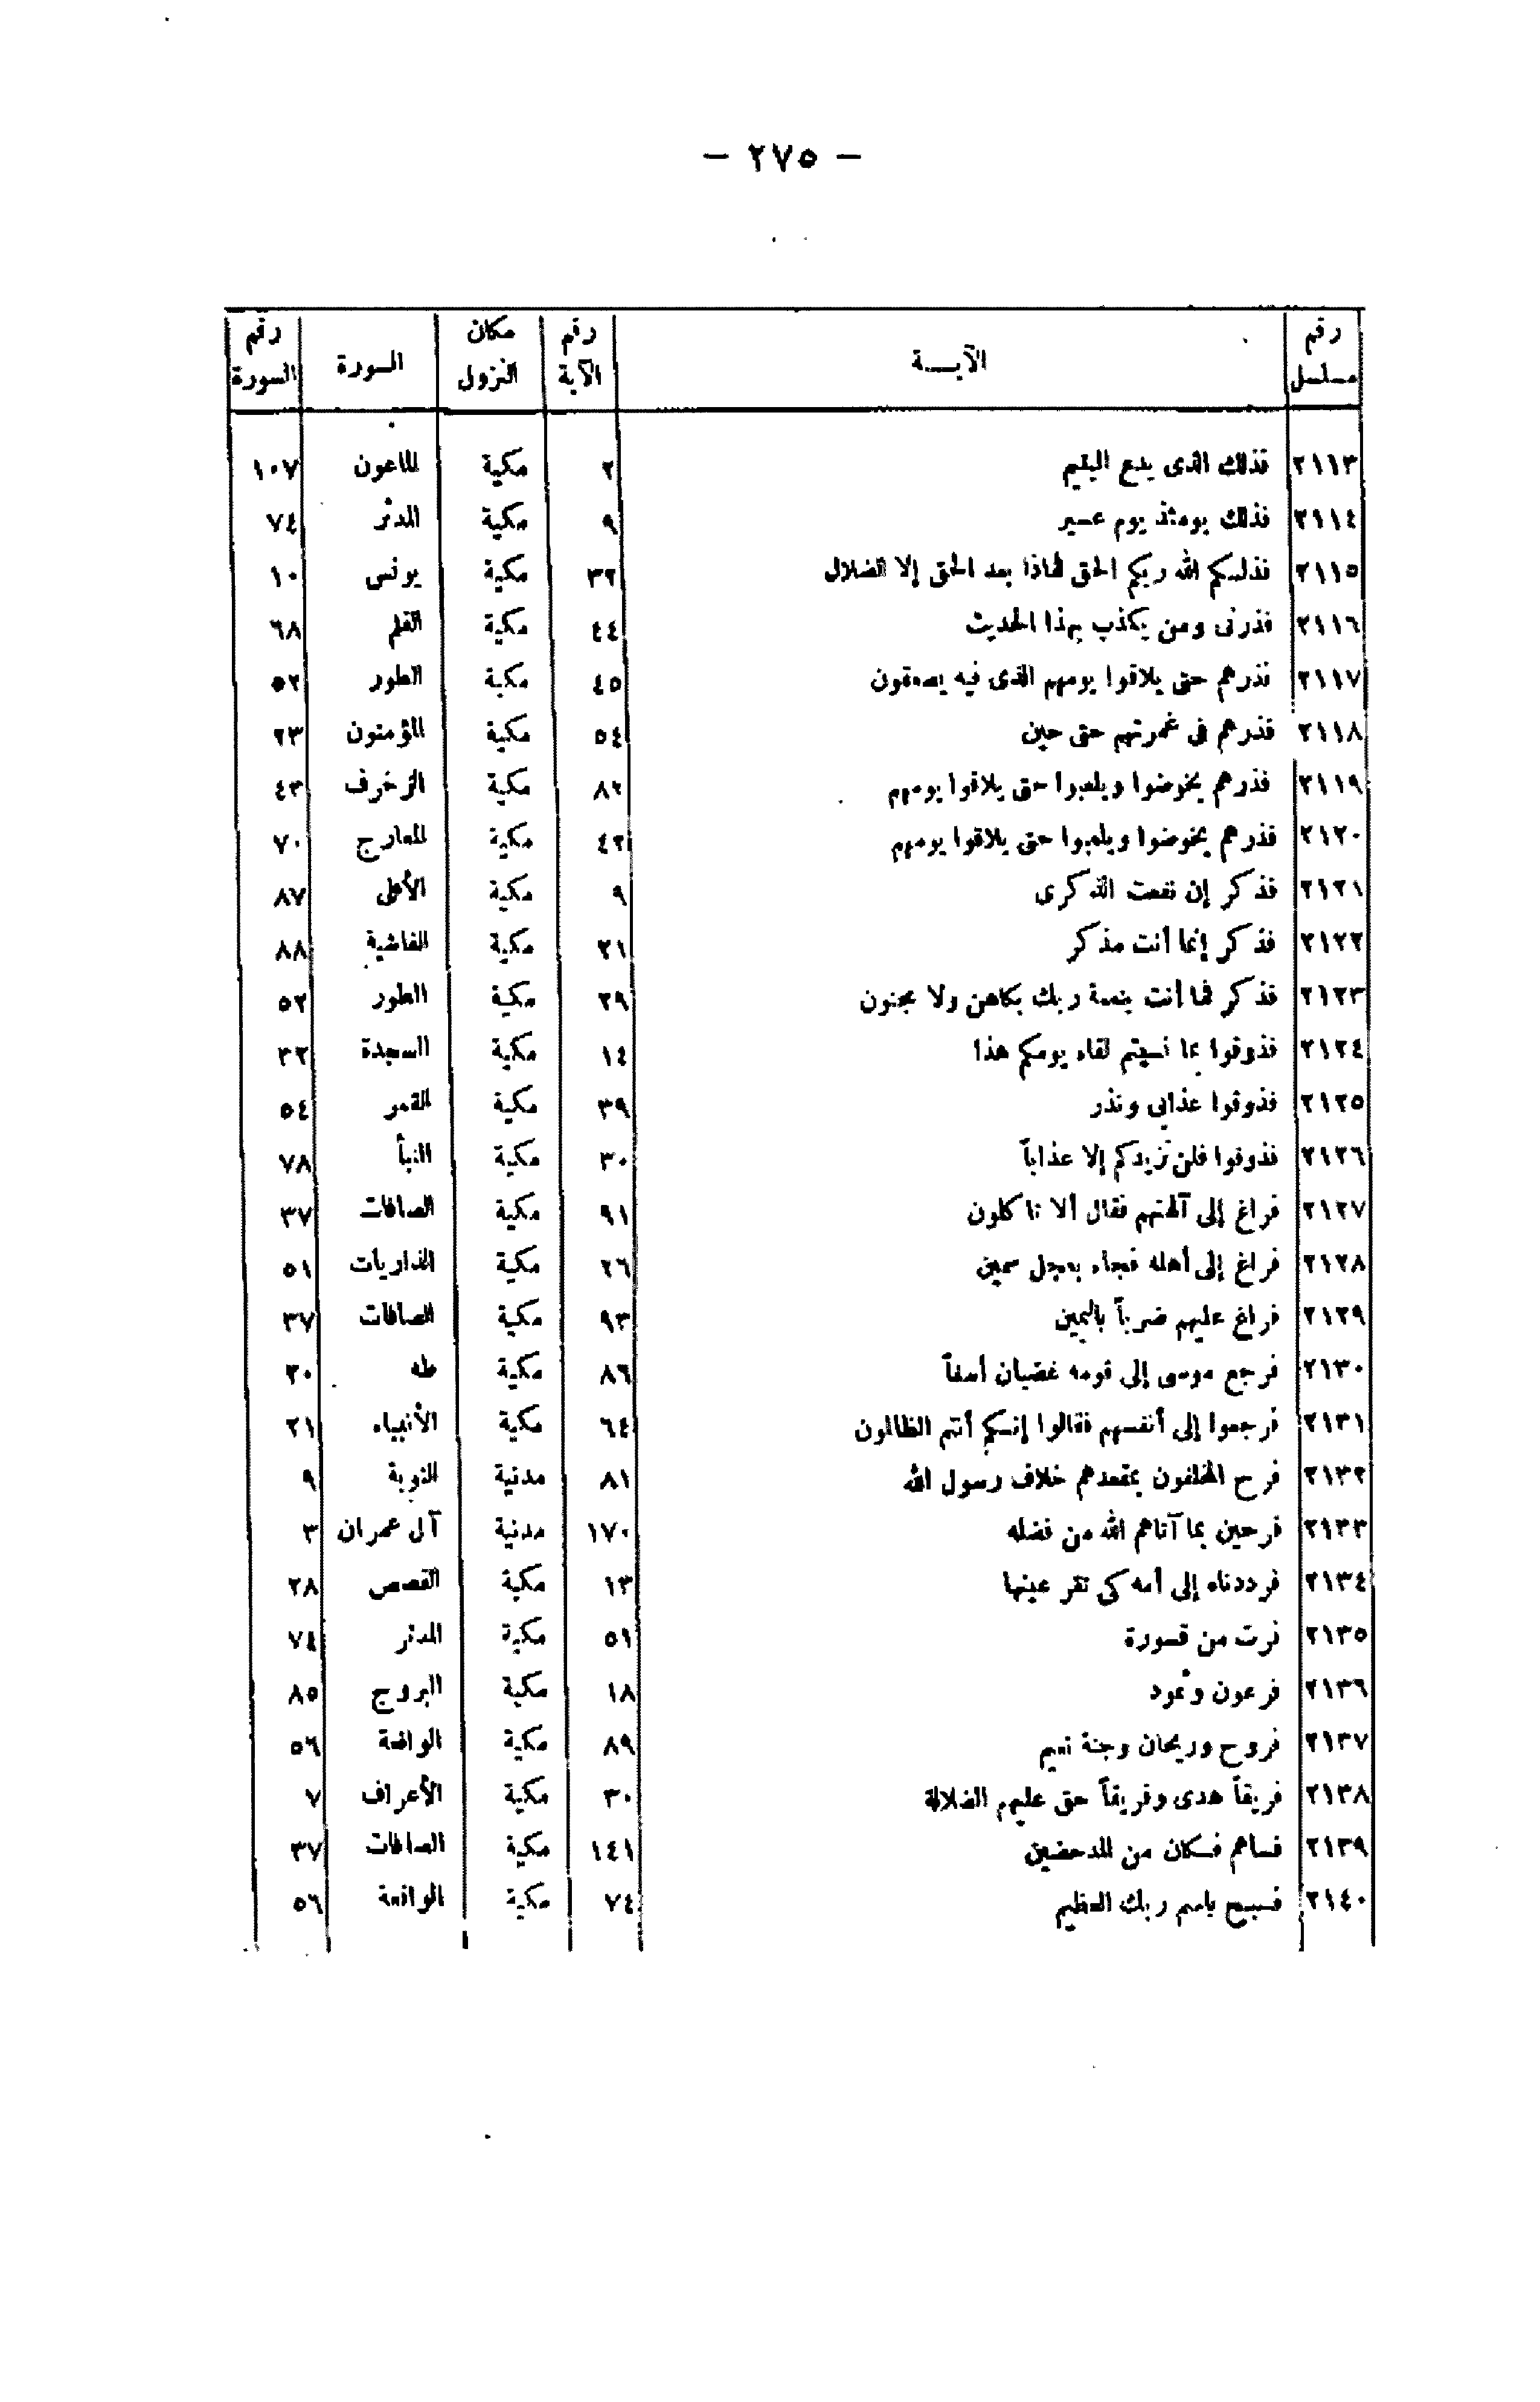 — ٢٧٥ —
رقم مسلسل الآيــة رقم الآية مكان النزول السورة رقم السورة
٢١١٣ فذلك الذى يدع اليتيم ٢ مكية الماعون ١٠٧
٢١١٤ فذلك يومئذ يوم عسير ٩ مكية المدثر ٧٤
٢١١٥ فذلكم الله ربكم الحق فماذا بعد الحق إلا الضلال ٣٢ مكية يونس ١٠
٢١١٦ فذرنى ومن يكذب بهذا الحديث ٤٤ مكية القلم ٦٨
٢١١٧ فذرهم حتى يلاقوا يومهم الذى فيه يصعقون ٤٥ مكية الطور ٥٢
٢١١٨ فذرهم فى غمرتهم حتى حين ٥٤ مكية المؤمنون ٢٣
٢١١٩ فذرهم يخوضوا ويلعبوا حتى يلاقوا يومهم ٨٢ مكية الزخرف ٤٣
٢١٢٠ فذرهم يخوضوا ويلعبوا حتى يلاقوا يومهم ٤٢ مكية المعارج ٧٠
٢١٢١ فذكر إن نفعت الذكرى ٩ مكية الأعلى ٨٧
٢١٢٢ فذكر إنما أنت مذكر ٢١ مكية الغاشية ٨٨
٢١٢٣ فذكر فما أنت بنعمة ربك بكاهن ولا مجنون ٢٩ مكية الطور ٥٢
٢١٢٤ فذوقوا بما نسيتم لقاء يومكم هذا ١٤ مكية السجدة ٣٢
٢١٢٥ فذوقوا عذابى ونذر ٣٩ مكية القمر ٥٤
٢١٢٦ فذوقوا فلن نزيدكم إلا عذاباً ٣٠ مكية النبأ ٧٨
٢١٢٧ فراغ إلى آلهتهم فقال ألا تأكلون ٩١ مكية الصافات ٣٧
٢١٢٨ فراغ إلى أهله فجاء بعجل سمين ٢٦ مكية الذاريات ٥١
٢١٢٩ فراغ عليهم ضرباً باليمين ٩٣ مكية الصافات ٣٧
٢١٣٠ فرجع موسى إلى قومه غضبان أسفاً ٨٦ مكية طه ٢٠
٢١٣١ فرجعوا إلى أنفسهم فقالوا إنكم أنتم الظالمون ٦٤ مكية الأنبياء ٢١
٢١٣٢ فرح المخلفون بمقعدهم خلاف رسول الله ٨١ مدنية التوبة ٩
٢١٣٣ فرحين بما آتاهم الله من فضله ١٧٠ مدنية آل عمران ٣
٢١٣٤ فرددناه إلى أمه كى تقر عينها ١٣ مكية القصص ٢٨
٢١٣٥ فرت من قسورة ٥١ مكية المدثر ٧٤
٢١٣٦ فرعون وثمود ١٨ مكية البروج ٨٥
٢١٣٧ فروح وريحان وجنة نعيم ٨٩ مكية الواقعة ٥٦
٢١٣٨ فريقاً هدى وفريقاً حق عليهم الضلالة ٣٠ مكية الأعراف ٧
٢١٣٩ فساهم فكان من المدحضين ١٤١ مكية الصافات ٣٧
٢١٤٠ فسبح باسم ربك العظيم ٧٤ مكية الواقعة ٥٦